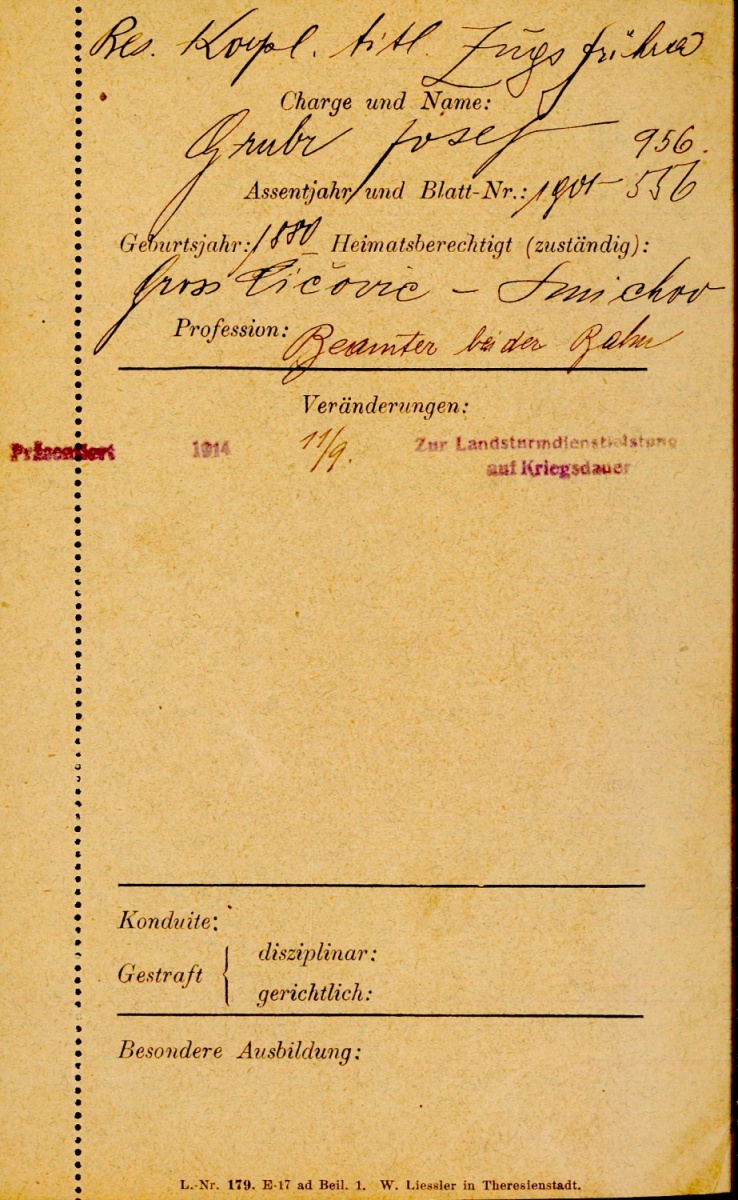 Res. Korpl. titl. Zugsführer
Charge und Name:
Grubr Josef 956.
Assentjahr und Blatt-Nr.: 1901 - 556
Geburtsjahr: 1880 Heimatsberechtigt (zuständig):
Gross Čičovic - Smichov
Profession: Beamter bei der Bahn
Veränderungen:
Präsentiert 1914 11/9. Zur Landsturmdienstleistung
auf Kriegsdauer
Konduite:
Gestraft { disziplinar:
gerichtlich:
Besondere Ausbildung:
L.-Nr. 179. E-17 ad Beil. 1. W. Liessler in Theresienstadt.